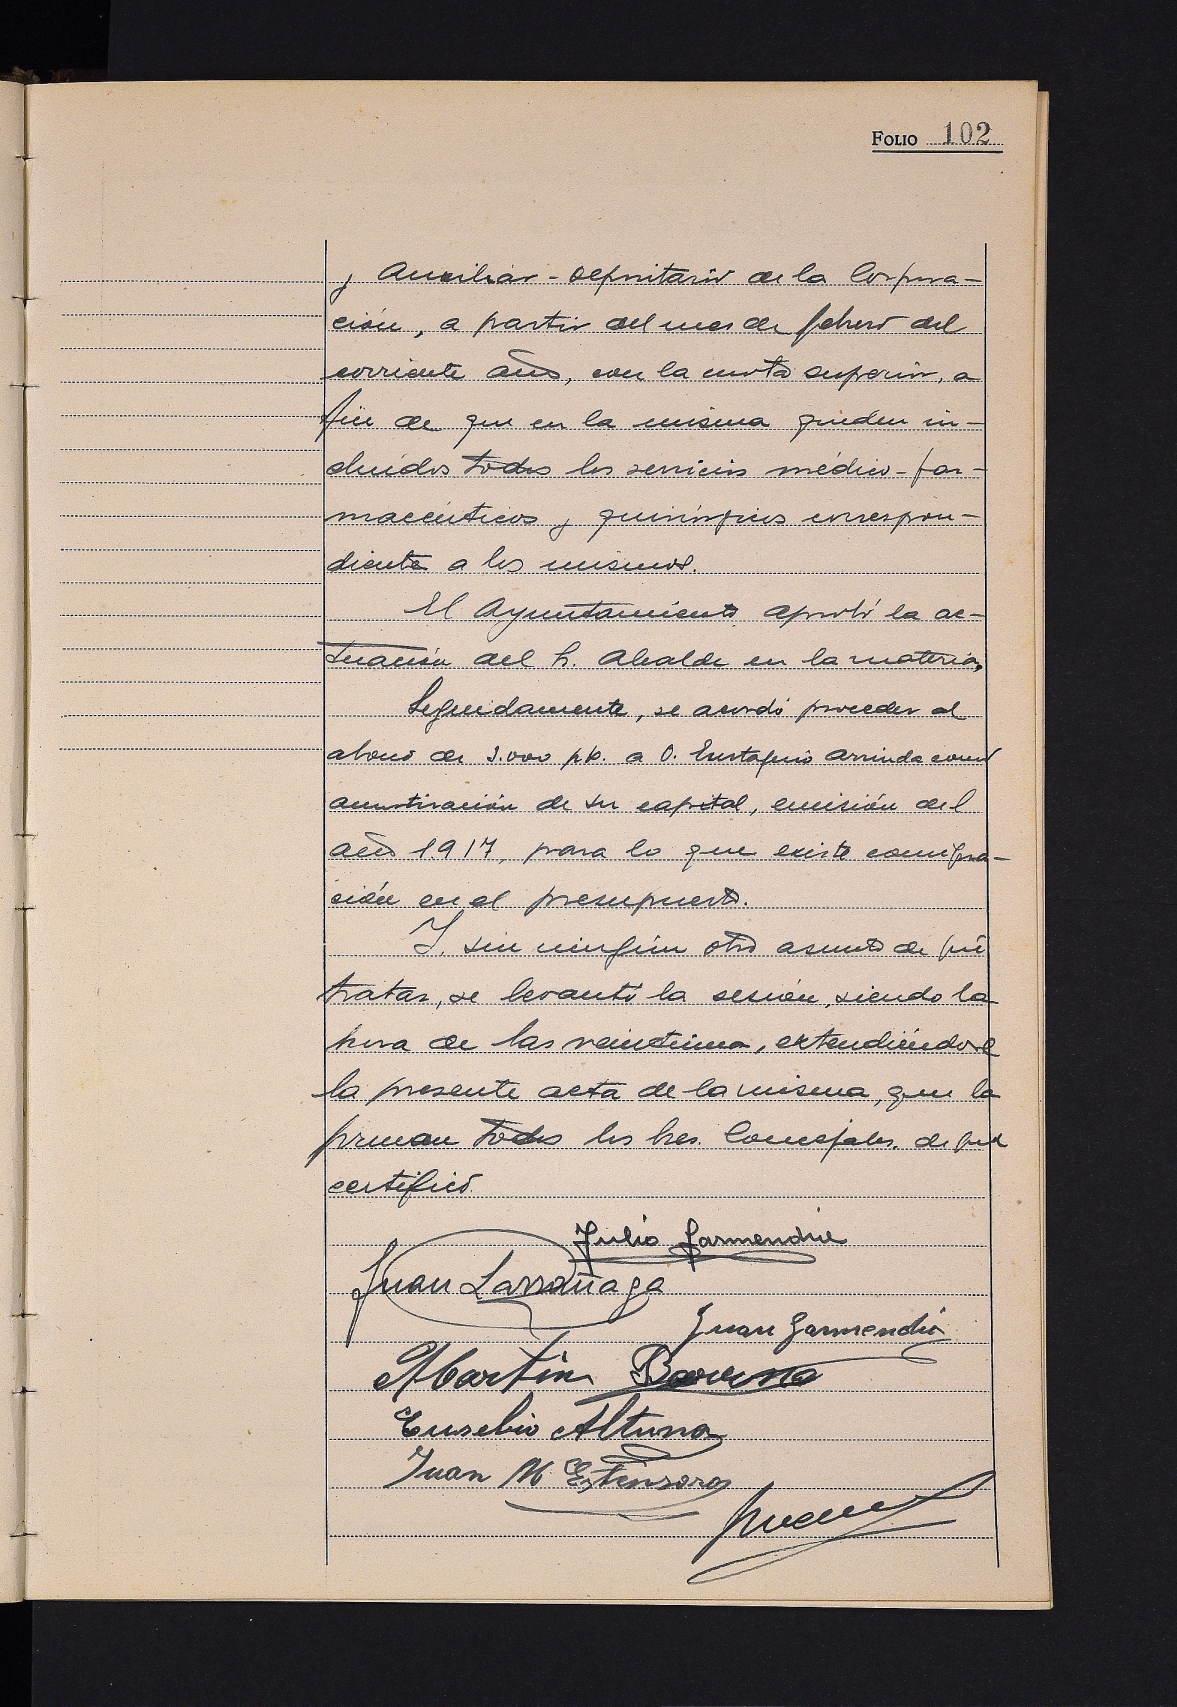 FOLIO 102
y Auxiliar-depositario de la Corpora-
ción, a partir del mes de febrero del
corriente año, con la cuota superior, a
fin de que en la misma queden in-
cluídos todos los servicios médico-far-
macéuticos y quirúrgicos correspon-
diente a los mismos.
El Ayuntamiento aprobó la ac-
tuación del Sr. Alcalde en la materia.
Seguidamente, se acordó proceder al
abono de 3.000 pts. a D. Eustaquio Arrinda como
amortización de su capital, emisión del
año 1917, para lo que existe consigna-
ción en el presupuesto.
Y sin ningún otro asunto de que
tratar, se levantó la sesión, siendo la
hora de las veintiuna, extendiéndose
la presente acta de la misma, que la
firman todos los Sres. Concejales. de que
certifico.
Julio Garmendia
Juan Larrañaga
Juan Garmendia
Martin
Eusebio Altuna
Juan M. Estensoro